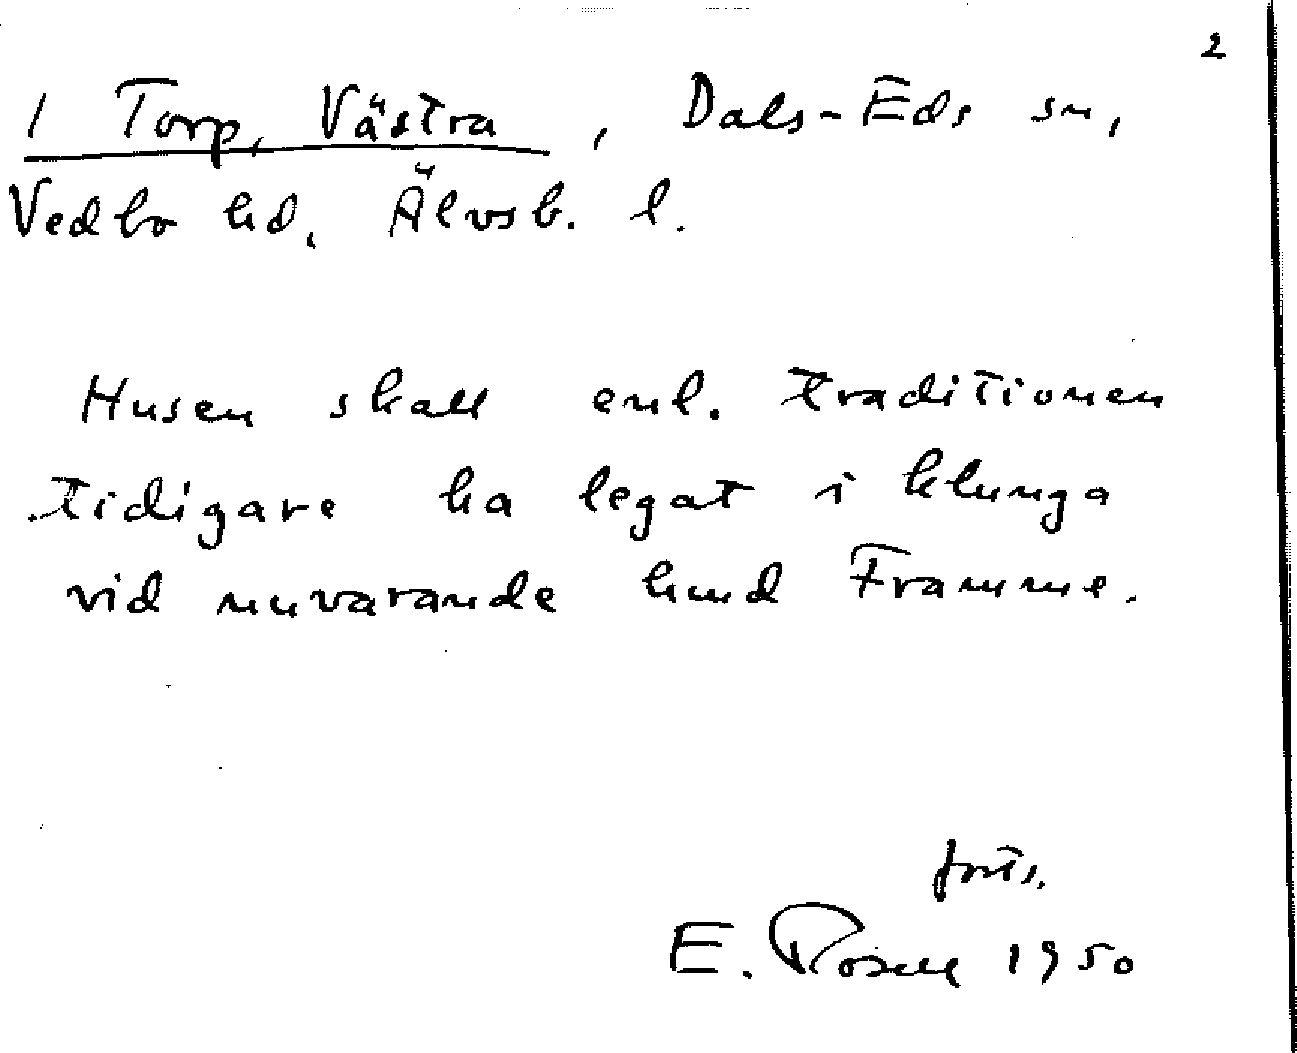 2
1 Torp, Västra, Dals-Eds sn,
Vedbo hd. Älvsb. l.
Husen skall enl. traditionen
tidigare ha legat i klunga
vid nuvarande lund Framme.
forts.
E. Rosell 1950